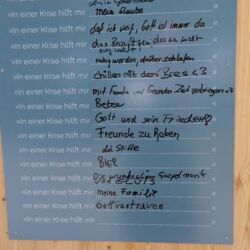 »In einer Krise hilft mir
»In einer Krise hilft mir mein Glaube «
»In einer Krise hilft mir daß ich weiß, Gott ist immer da «
»In einer Krise hilft mir das
»In einer Krise hilft mir ruhig werden, drüber schlafen «
»In einer Krise hilft mir chillen mit den Bros <3 «
»In einer Krise hilft mir mit Familie und Freunden Zeit verbringen <3
»In einer Krise hilft mir Beten «
»In einer Krise hilft mir Gott und sein Frieden «
»In einer Krise hilft mir Freunde zu haben «
»In einer Krise hilft mir die Stille «
»In einer Krise hilft mir BIER «
»In einer Krise hilft mir Gospel musik «
»In einer Krise hilft mir meine Familie «
»In einer Krise hilft mir Gottvertrauen «